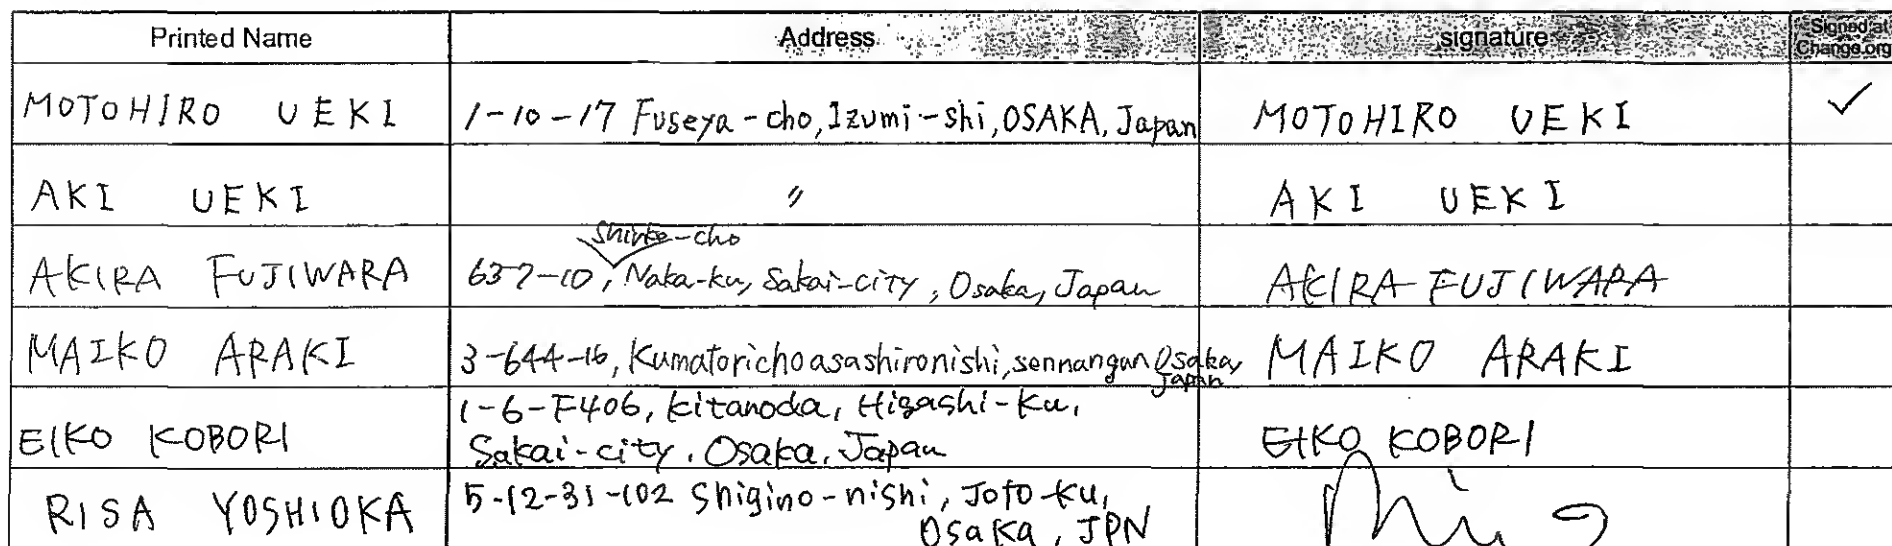 Printed Name Address signature Signed at Change.org
MOTOHIRO UEKI 1-10-17 Fuseya-cho, Izumi-shi, OSAKA, Japan MOTOHIRO UEKI ✓
AKI UEKI 〃 AKI UEKI
Shinke-cho
AKIRA FUJIWARA 637-10, Naka-ku, Sakai-city, Osaka, Japan AKIRA FUJIWARA
MAIKO ARAKI 3-644-16, Kumatorichoasashironishi, sennangun Osaka, Japan MAIKO ARAKI
1-6-F406, Kitanoda, Higashi-Ku,
EIKO KOBORI Sakai-city, Osaka, Japan EIKO KOBORI
RISA YOSHIOKA 5-12-31-102 Shigino-nishi, Joto-Ku,
Osaka, JPN